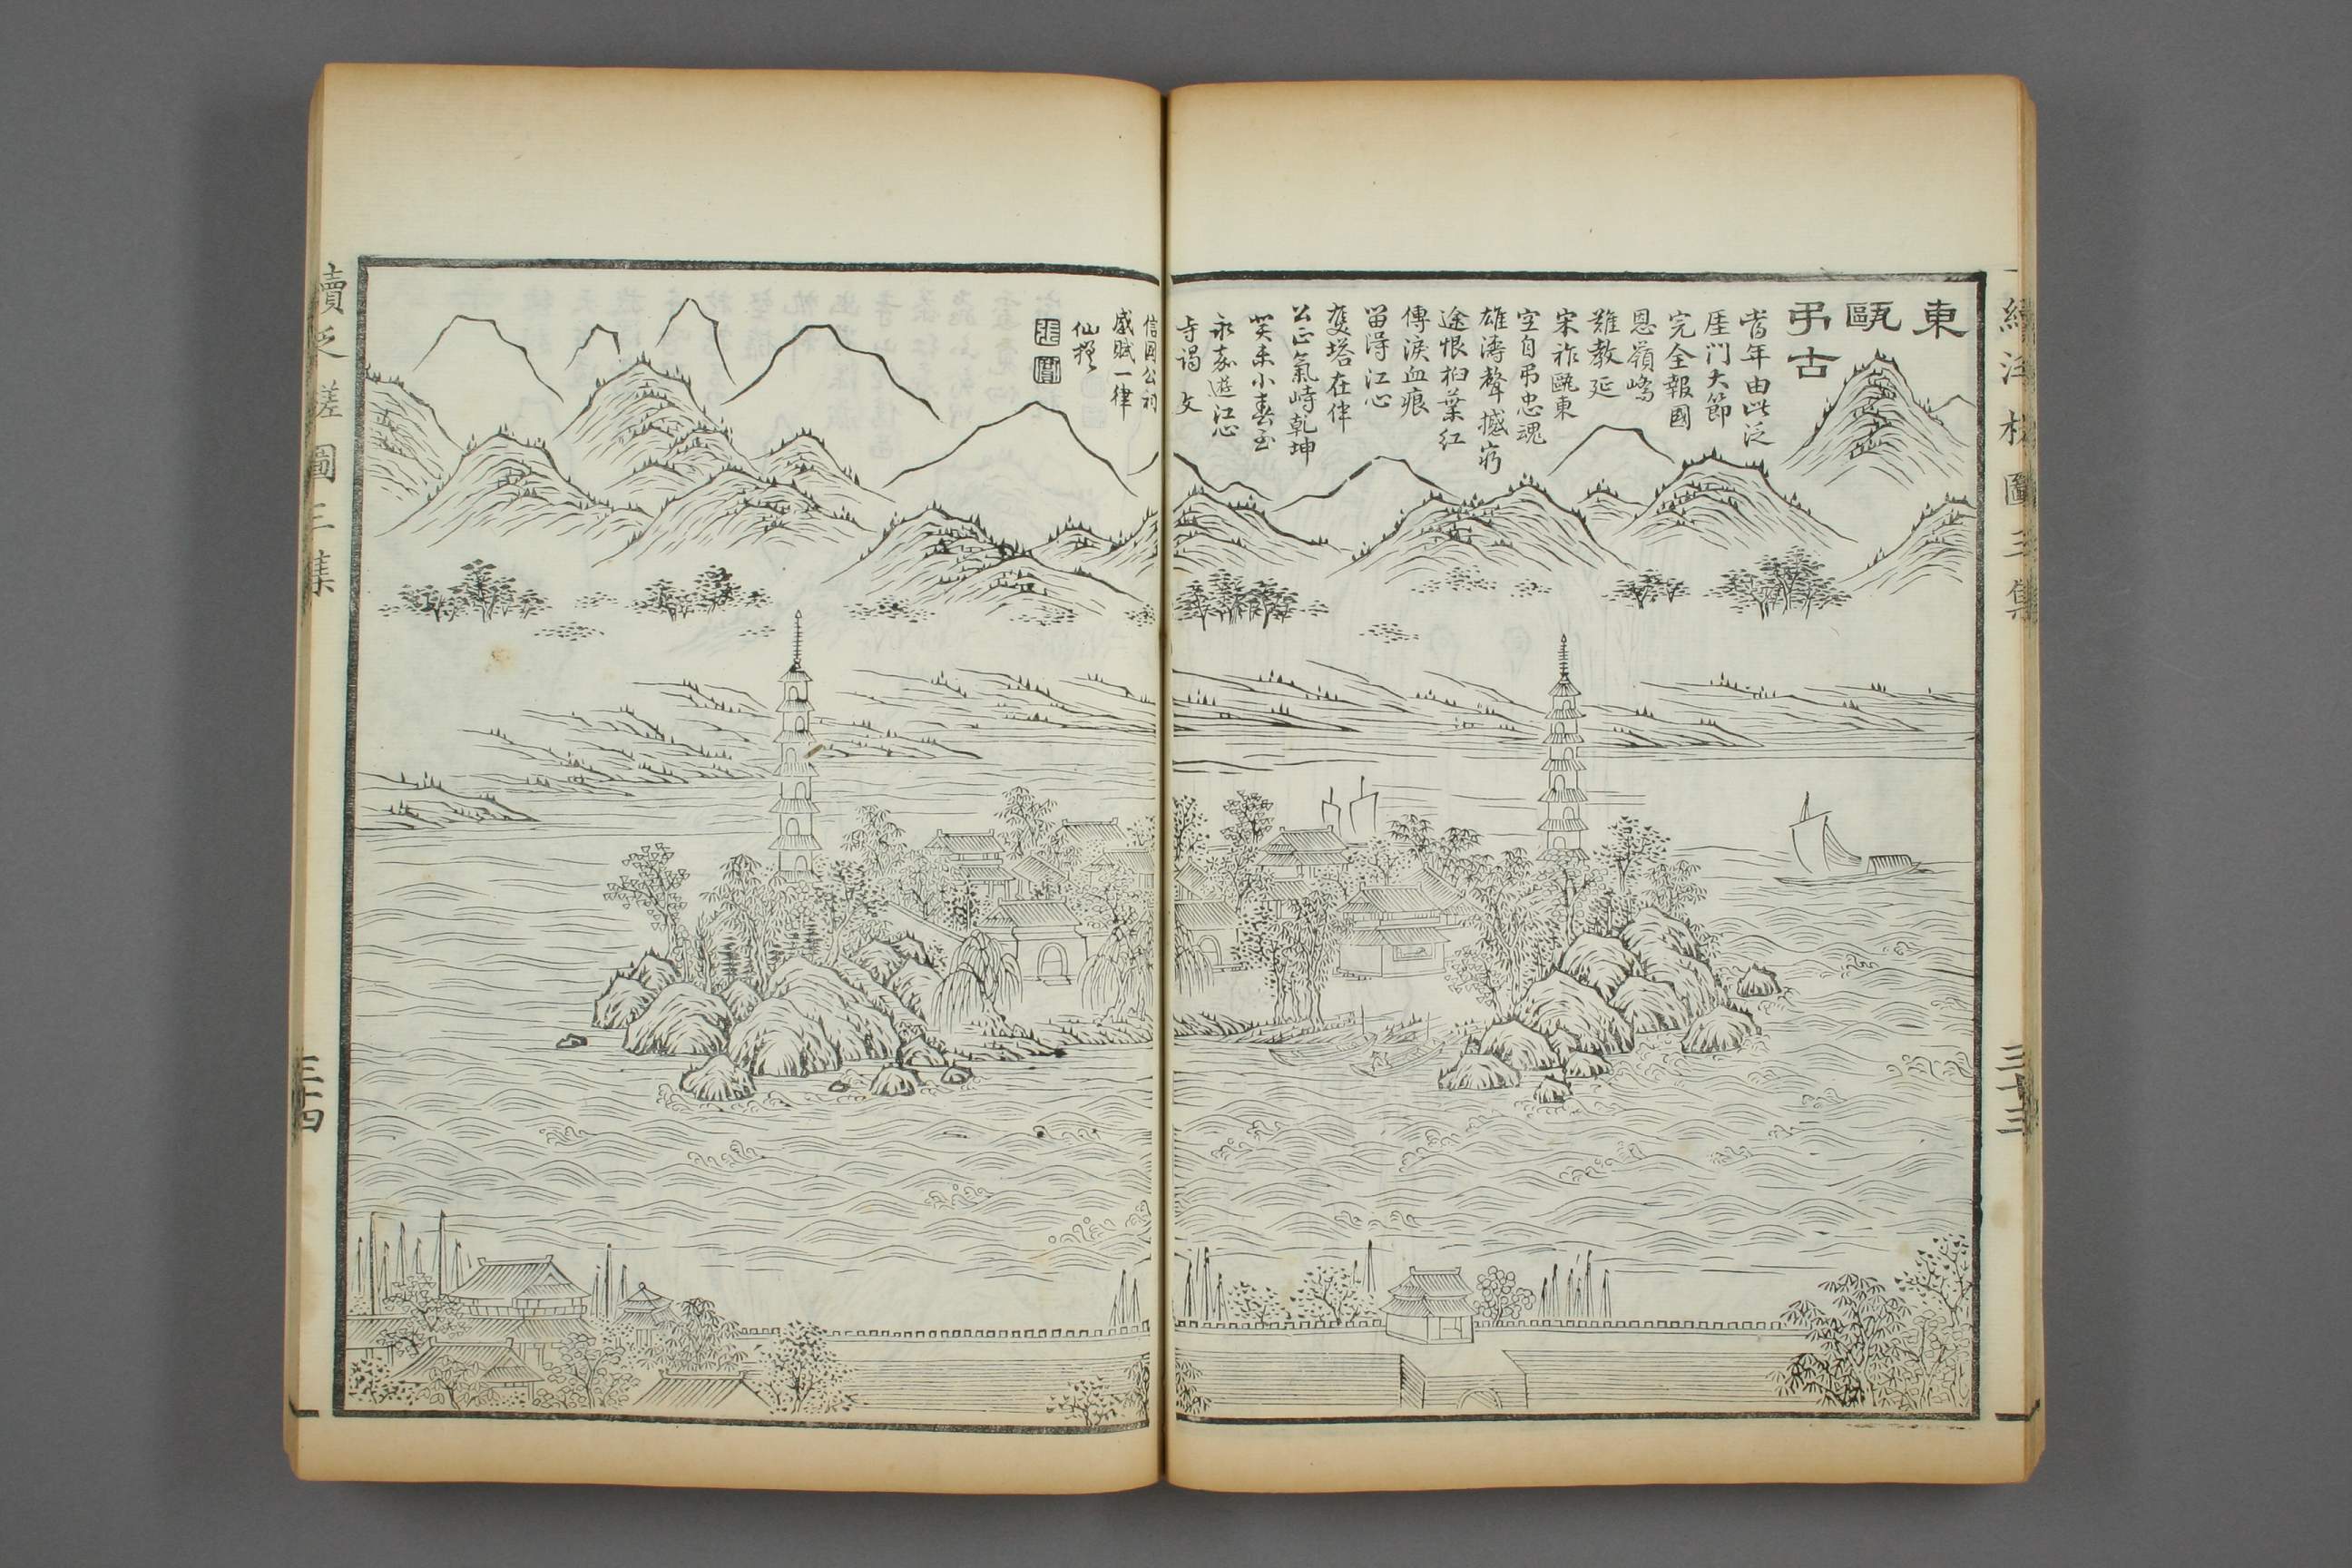 續泛槎圖三集
三十三
東
甌
弔古
當年由此泛
厓門大節
完全報國
恩嶺嶠
難教延
宋祚甌東
空自弔忠魂
雄濤聲撼窮
途恨桕葉紅
傳淚血痕
留得江心
雙塔在伴
公正氣峙乾坤
癸未小春至
永嘉遊江心
寺謁文
信國公祠
感賦一律
仙槎
張
寶
續泛槎圖三集
三十四